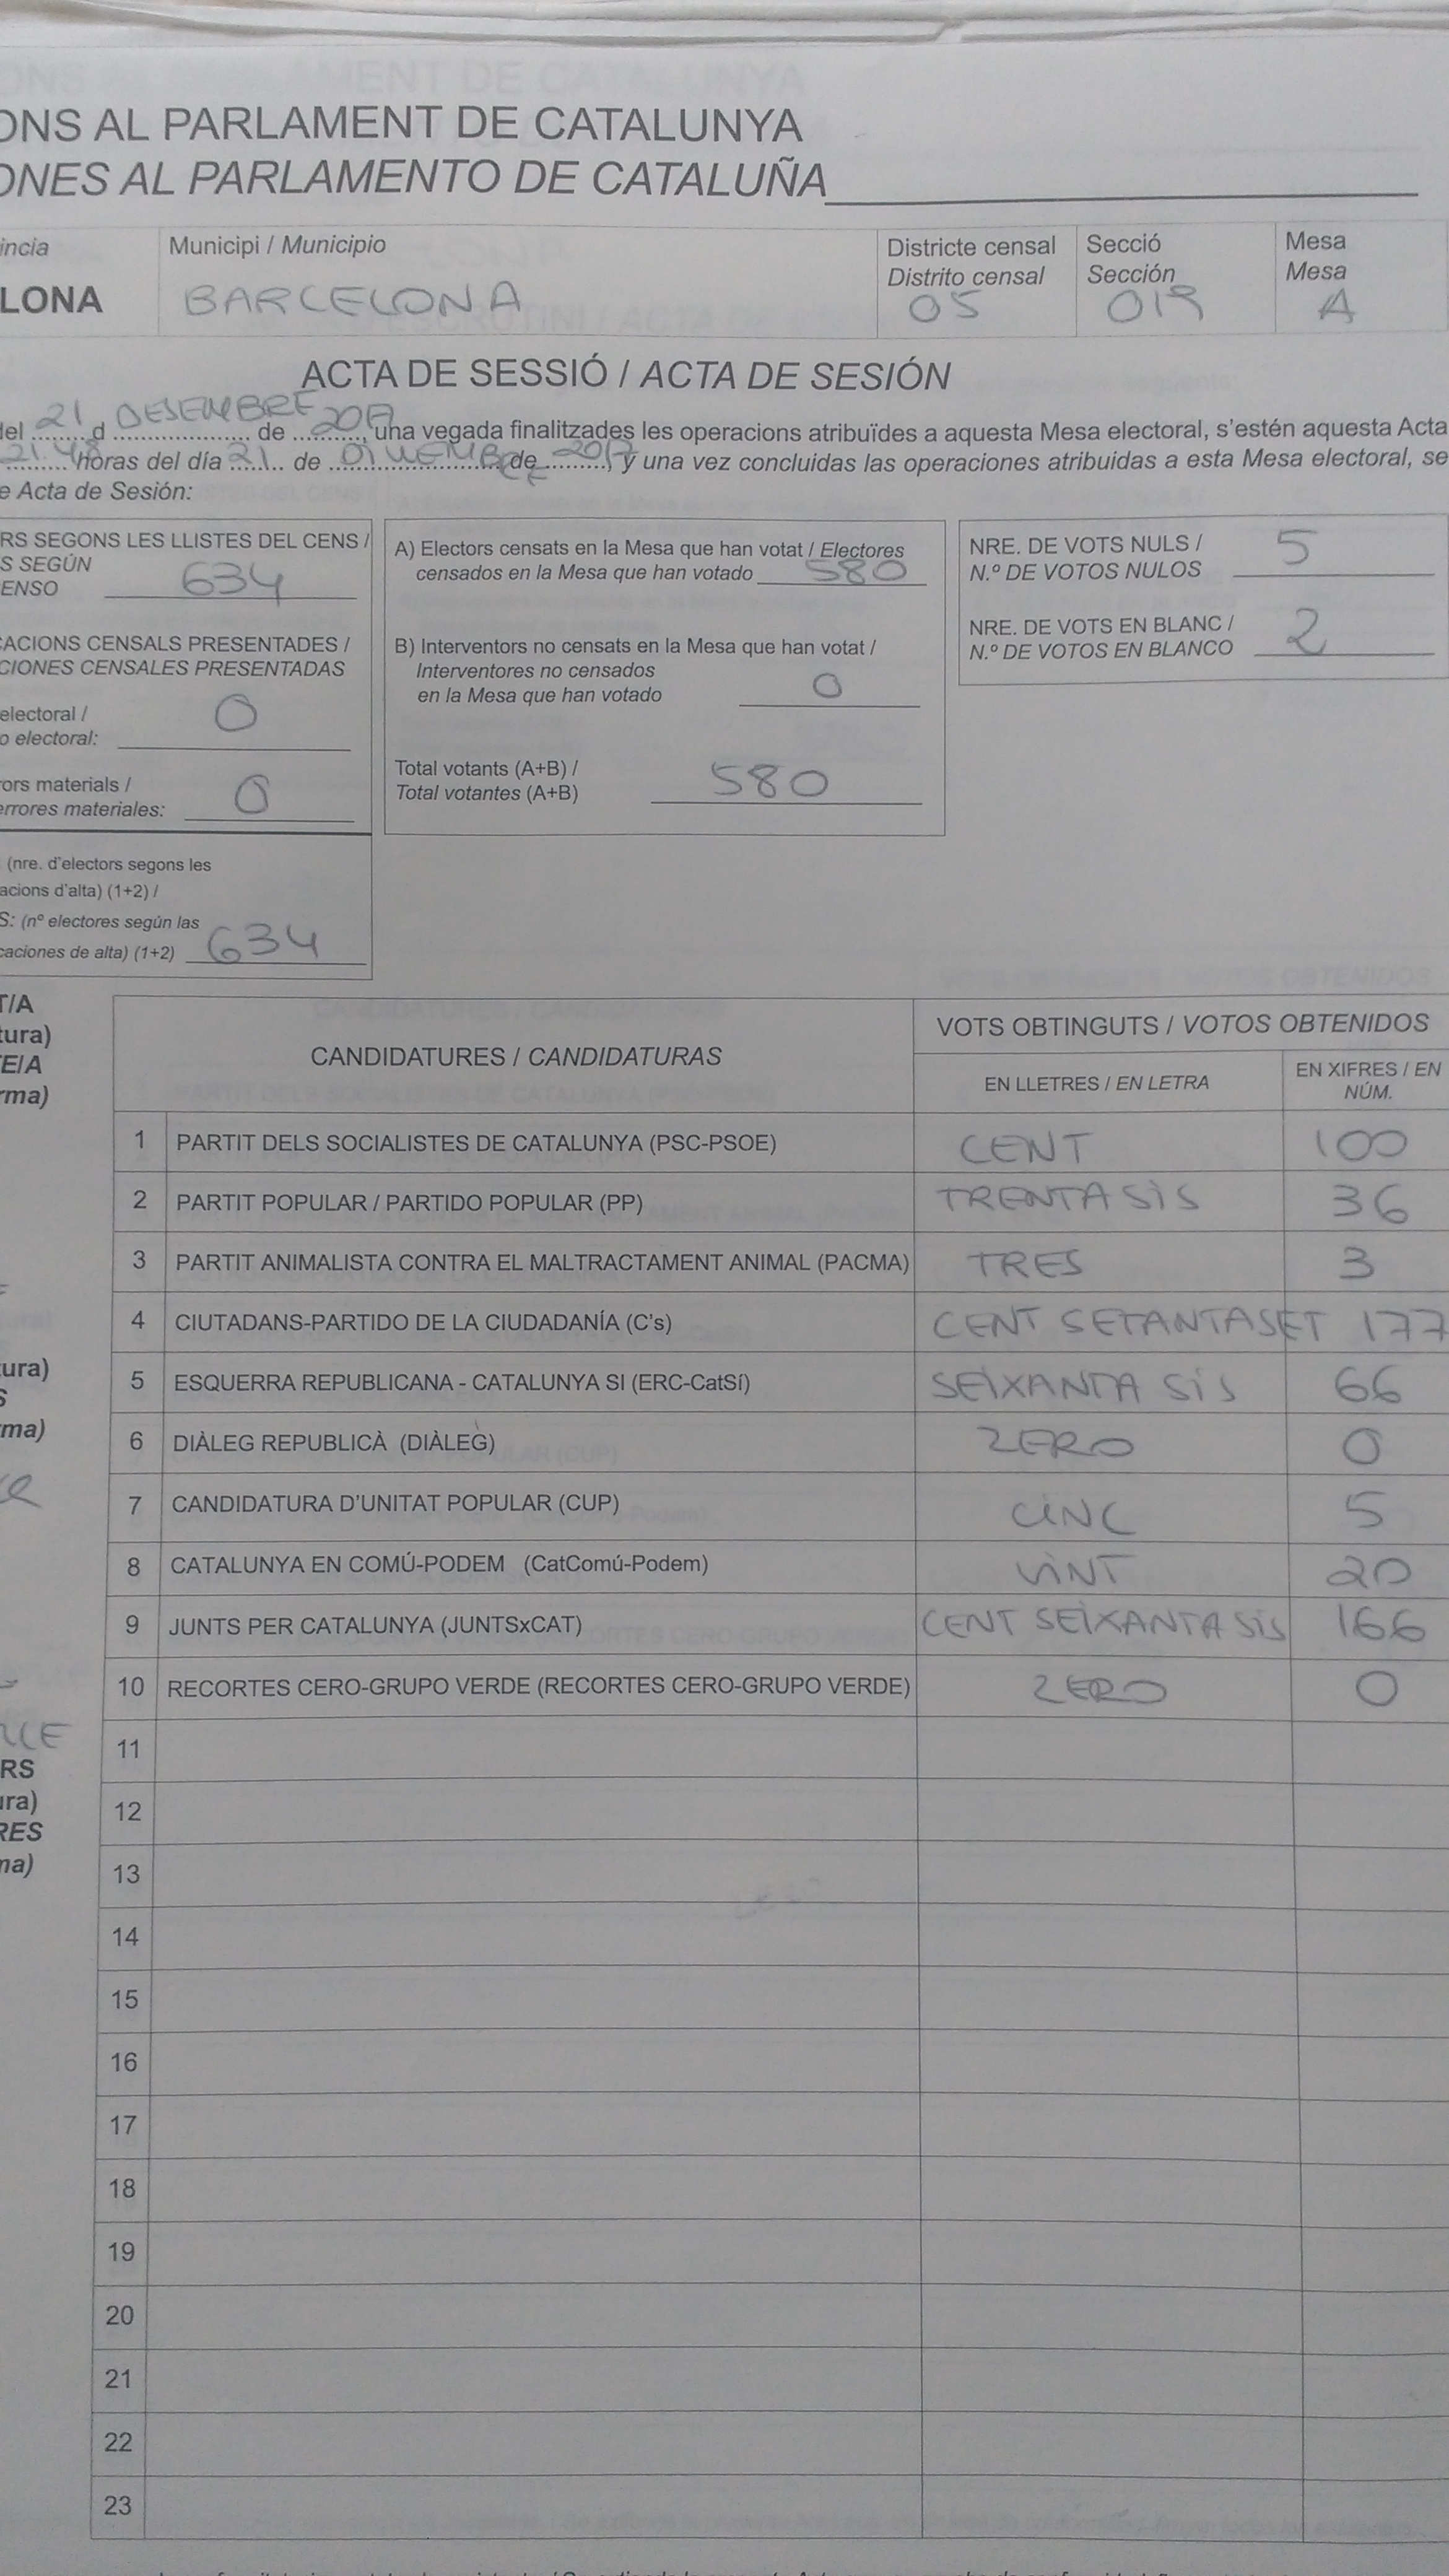 ONS AL PARLAMENT DE CATALUNYA
ONES AL PARLAMENTO DE CATALUÑA
incia
LONA
Municipi / Municipio
BARCELONA
Districte censal
Distrito censal
05
Secció
Sección
019
Mesa
Mesa
A
ACTA DE SESSIÓ / ACTA DE SESIÓN
del 21 d DESEMBRE de 2017, una vegada finalitzades les operacions atribuïdes a aquesta Mesa electoral, s'estén aquesta Acta
21.48 horas del día 21 de de 2017, y una vez concluidas las operaciones atribuidas a esta Mesa electoral, se
e Acta de Sesión:
RS SEGONS LES LLISTES DEL CENS /
S SEGÚN
ENSO 634
CACIONS CENSALS PRESENTADES /
CIONES CENSALES PRESENTADAS
electoral /
o electoral: 0
rors materials /
errores materiales: 0
(nre. d'electors segons les
acions d'alta) (1+2) /
S: (nº electores según las
caciones de alta) (1+2) 634
A) Electors censats en la Mesa que han votat / Electores
censados en la Mesa que han votado 580
B) Interventors no censats en la Mesa que han votat /
Interventores no censados
en la Mesa que han votado 0
Total votants (A+B) /
Total votantes (A+B) 580
NRE. DE VOTS NULS /
N.º DE VOTOS NULOS 5
NRE. DE VOTS EN BLANC /
N.º DE VOTOS EN BLANCO 2
T/A
tura)
TE/A
rma)
tura)
S
rma)
RS
ura)
RES
ma)
CANDIDATURES / CANDIDATURAS
VOTS OBTINGUTS / VOTOS OBTENIDOS
EN LLETRES / EN LETRA
EN XIFRES / EN
NÚM.
1 PARTIT DELS SOCIALISTES DE CATALUNYA (PSC-PSOE) CENT 100
2 PARTIT POPULAR / PARTIDO POPULAR (PP) TRENTA SIS 36
3 PARTIT ANIMALISTA CONTRA EL MALTRACTAMENT ANIMAL (PACMA) TRES 3
4 CIUTADANS-PARTIDO DE LA CIUDADANÍA (C's) CENT SETANTASET 177
5 ESQUERRA REPUBLICANA - CATALUNYA SI (ERC-CatSí) SEIXANTA SIS 66
6 DIÀLEG REPUBLICÀ (DIÀLEG) ZERO 0
7 CANDIDATURA D'UNITAT POPULAR (CUP) CINC 5
8 CATALUNYA EN COMÚ-PODEM (CatComú-Podem) VINT 20
9 JUNTS PER CATALUNYA (JUNTSxCAT) CENT SEIXANTA SIS 166
10 RECORTES CERO-GRUPO VERDE (RECORTES CERO-GRUPO VERDE) ZERO 0
11
12
13
14
15
16
17
18
19
20
21
22
23